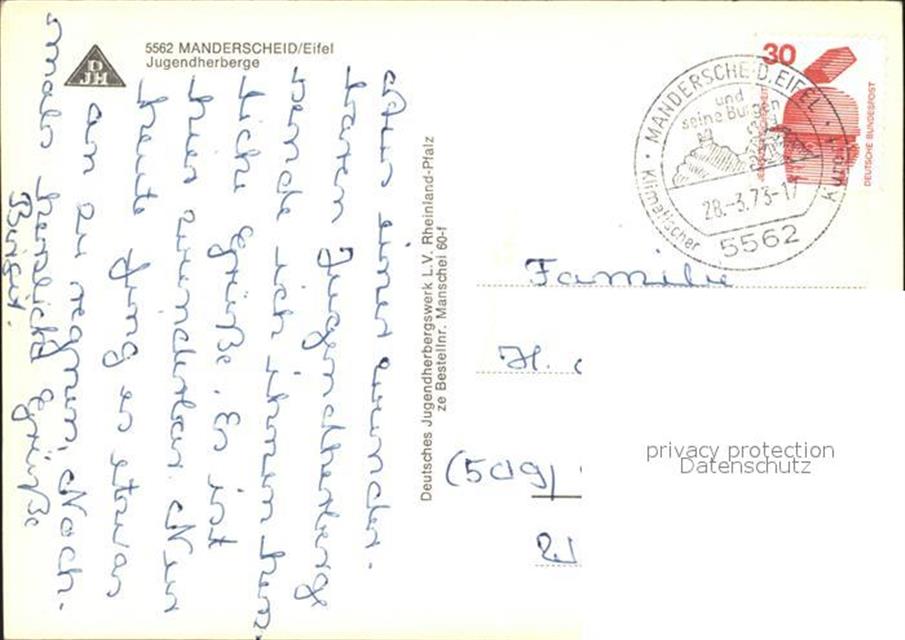 5562 MANDERSCHEID/Eifel
Jugendherberge
D
JH
Aus einer wunder-
baren Jugendherberg
sende ich ihnen herz
liche Grüße. Es ist
hier wunderbar. Nur
heute fing es etwas
an zu regnen. Noch-
mals herzliche Grüße
Birgit.
Deutsches Jugendherbergswerk L.V. Rheinland-Pfalz
ze Bestellnr. Manschei 60-f
30
DEUTSCHE BUNDESPOST
MANDERSCHEID, EIFEL
und
seine Burgen
28.-3.73-17
Klimatischer Kurort
5562
Familie
H.
(509)
privacy protection
Datenschutz